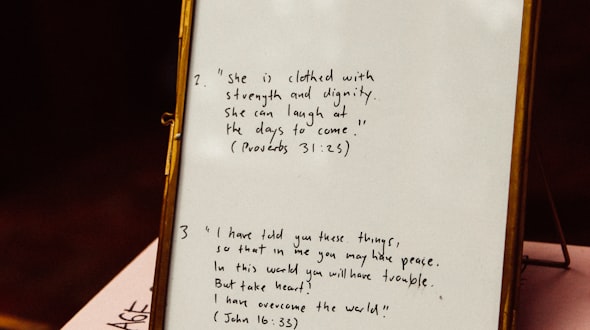 2. "She is clothed with
strength and dignity.
She can laugh at
the days to come."
(Proverbs 31:25)
3 "I have told you these things,
so that in me you may have peace.
In this world you will have trouble.
But take heart!
I have overcome the world"
(John 16:33)
AGE